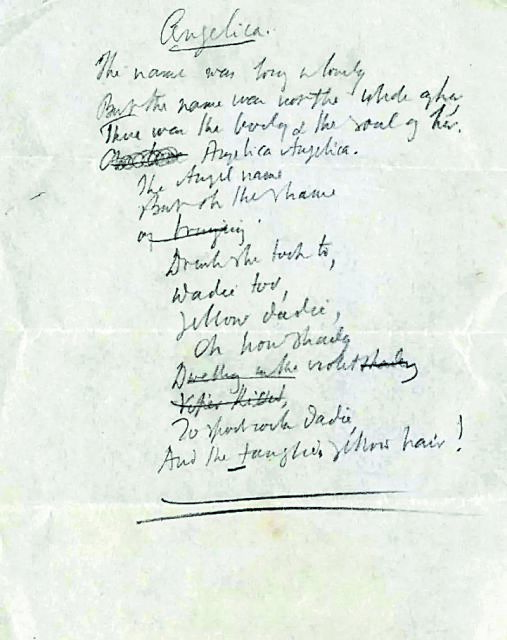 Angelica.
The name was long & lovely
But the name was not the whole of her,
There was the body & the soul of her.
Angelica Angelica.
The Angel name
But oh the shame
of
Drink she took to,
too,
Yellow
Oh how shady
Dwelling in the violet
To sport with
And the tangled yellow hair!